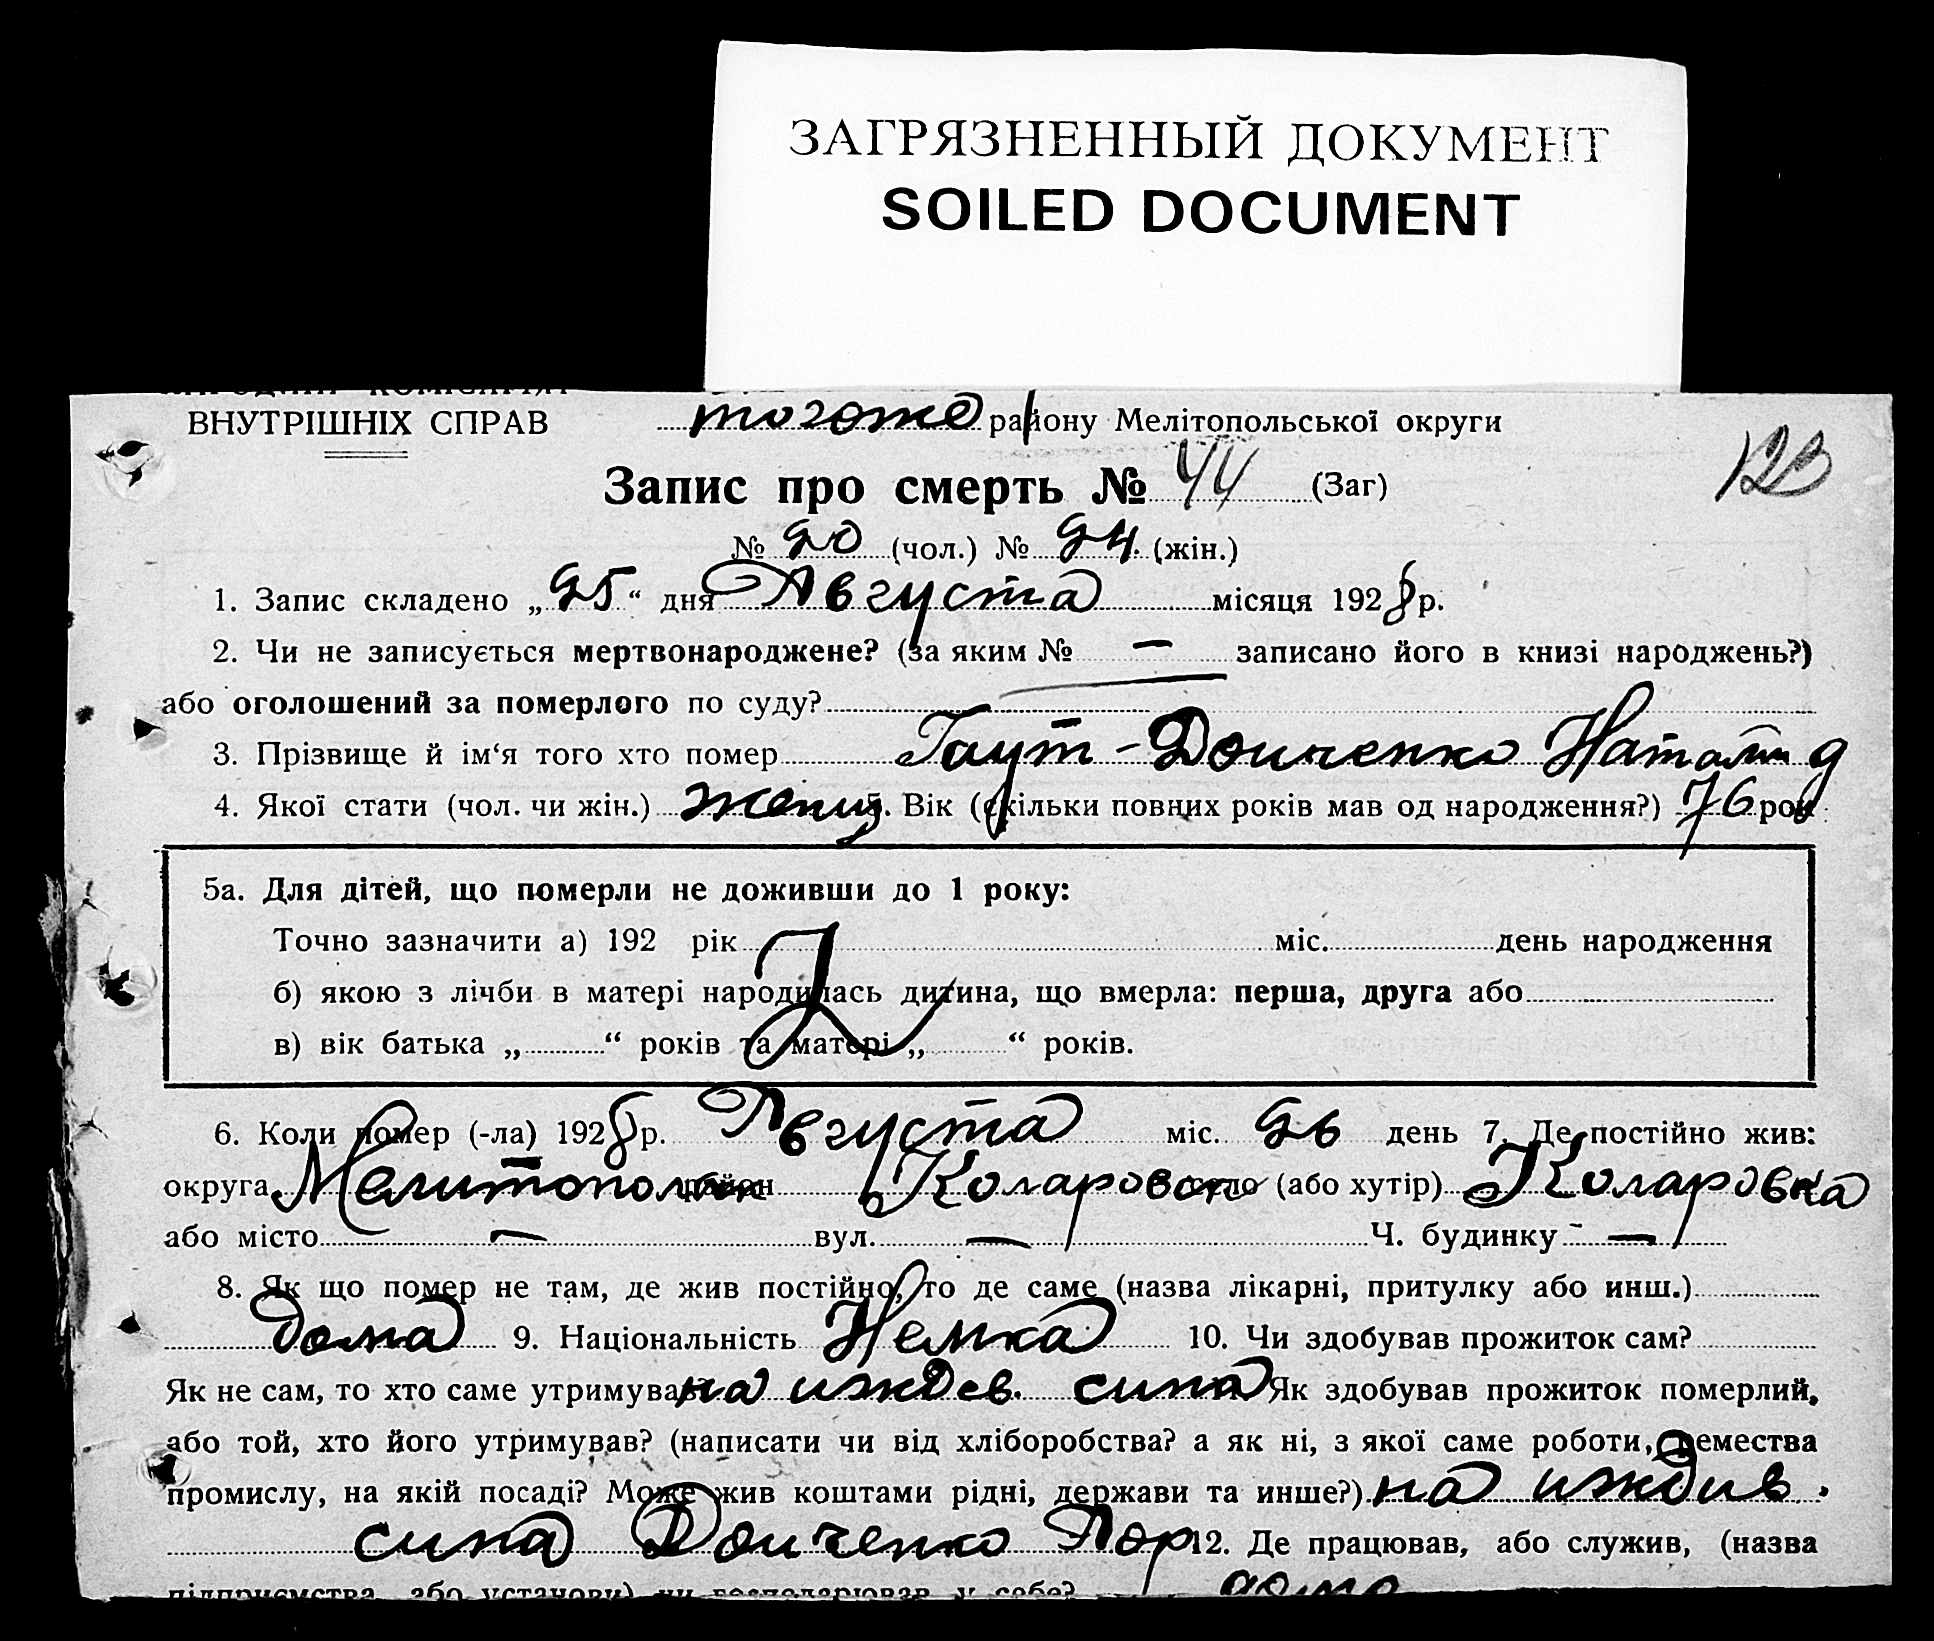 ЗАГРЯЗНЕННЫЙ ДОКУМЕНТ
SOILED DOCUMENT
ВНУТРІШНІХ СПРАВ тогоже району Мелітопольської округи
Запис про смерть № 44 (Заг)
123
№ 20 (чол.) № 24. (жін.)
1. Запис складено „25“ дня Августа місяця 1928 р.
2. Чи не записується мертвонароджене? (за яким № — записано його в книзі народжень?)
або оголошений за померлого по суду?
3. Прізвище й ім‘я того хто помер Гаут-Донченко Наталия
4. Якої стати (чол. чи жін.) женщ 5. Вік (скільки повних років мав од народження?) 76 рок
5а. Для дітей, що померли не доживши до 1 року:
Точно зазначити а) 192 рік міс. день народження
б) якою з лічби в матері народилась дитина, що вмерла: перша, друга або
в) вік батька „ “ років та матері „ “ років.
6. Коли помер (-ла) 1928 р. Августа міс. 26 день 7. Де постійно жив:
округа Мелитополь район Коларовск село (або хутір) Коларовка
або місто — вул. — Ч. будинку —
8. Як що помер не там, де жив постійно, то де саме (назва лікарні, притулку або инш.)
дома 9. Національність Немка 10. Чи здобував прожиток сам?
Як не сам, то хто саме утримував? на иждев. сина Як здобував прожиток померлий,
або той, хто його утримував? (написати чи від хліборобства? а як ні, з якої саме роботи, ремества
промислу, на якій посаді? Може жив коштами рідні, держави та инше?) на иждив.
сина Донченко 12. Де працював, або служив, (назва
підприємства або установи) чи господарював у себе? дома